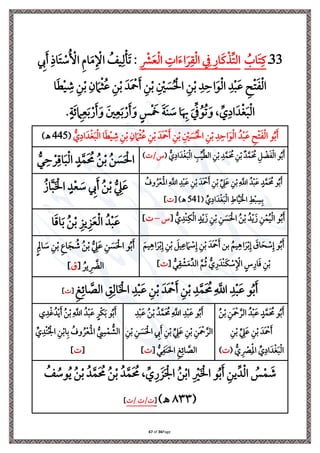 33. كِتَابُ التِّذْكَارِ فِي الْقِرَاءَاتِ الْعَشْرِ : تَأْلِيفُ الْإِمَامِ الْأُسْتَاذِ أَبِي
الْفَتْحِ عَبْدِ الْوَاحِدِ بْنِ الْحُسَيْنِ بْنِ أَحْمَدَ بْنِ عُثْمَانَ بْنِ شِيْطَا
الْبَغْدَادِيِّ، وَتُوُفِّيَ بِهَا سَنَةَ خَمْسٍ وَأَرْبَعِينَ وَأَرْبَعِمِائَةٍ.
أَبُو الْفَتْحِ عَبْدُ الْوَاحِدِ بْنِ الْحُسَيْنِ بْنِ أَحْمَدَ بْنِ عُثْمَانَ بْنِ شِيْطَا الْبَغْدَادِيُّ (445 هـ)
أَبُو الْفَضْلِ مُحَمَّدُ بْنُ مُحَمَّدِ بْنِ الطَّيِّبِ الْبَغْدَادِيُّ (س/ت)
الْحَسَنُ بْنُ مُحَمَّدٍ الْبَاقَرْحِيُّ
أَبُو مُحَمَّدٍ عَبْدُ اللهِ بْنِ عَلِيِّ بْنِ أَحْمَدَ بْنِ عَبْدِ اللهِ الْمَعْرُوفُ
بِسِبْطِ الْخَيَّاطِ الْبَغْدَادِيُّ (541 هـ) [ت]
عَلِيُّ بْنُ أَبِي سَعْدٍ الْخَبَّازُ
أَبُو الْيُمْنِ زَيْدُ بْنُ الْحَسَنِ بْنِ زَيْدٍ الْكِنْدِيُّ [س – ت]
عَبْدُ الْعَزِيزِ بْنُ بَاقَا
أَبُو إِسْحَاقَ إِبْرَاهِيمُ بن أَحْمَدَ بْنِ إِسْمَاعِيلَ بْنِ إِبْرَاهِيمَ
بْنِ فَارِسٍ الْإِسْكَنْدَرِيُّ ثُمَّ الدِّمَشْقِيُّ [ت]
أَبُو الْحَسَنِ عَلِيُّ بْنُ شُجَاعِ بْنِ سَالِمٍ
الضَّرِيرُ [ق]
أَبُو عَبْدِ اللهِ مُحَمَّدِ بْنِ أَحْمَدَ بْنِ عَبْدِ الْخَالِقِ الصَّائِغُ [ت]
أَبُو مُحَمَّدٍ عَبْدُ الرَّحْمَنِ بْنُ
أَحْمَدَ بْنِ عَلِيِّ بْنِ
الْبَغْدَادِيُّ الْمِصْرِيُّ (ت)
أَبُو عَبْدِ اللهِ مُحَمَّدُ بْنُ عَبْدِ
الرَّحْمَنِ بْنِ عَلِيِّ بْنِ أَبِي الْحَسَنِ بْنِ
الصَّائِغِ الْحَنَفِيُّ [ت]
أَبُو بَكْرٍ عَبْدُ اللهِ بْنُ أَيْدُغْدِي
الشَّمْسِيُّ الْمَعْرُوفُ بِابْنِ الْجُنْدِيِّ
[ت]
شَمْسُ الدِّينِ أَبُو الْخَيْرِ ابْنُ الْجَزَرِيِّ، مُحَمَّدُ بْنُ مُحَمَّدُ بْنُ يُوسُفُ
(٨٣٣ هـ) [ت/ت /ت]
47 of 34Page